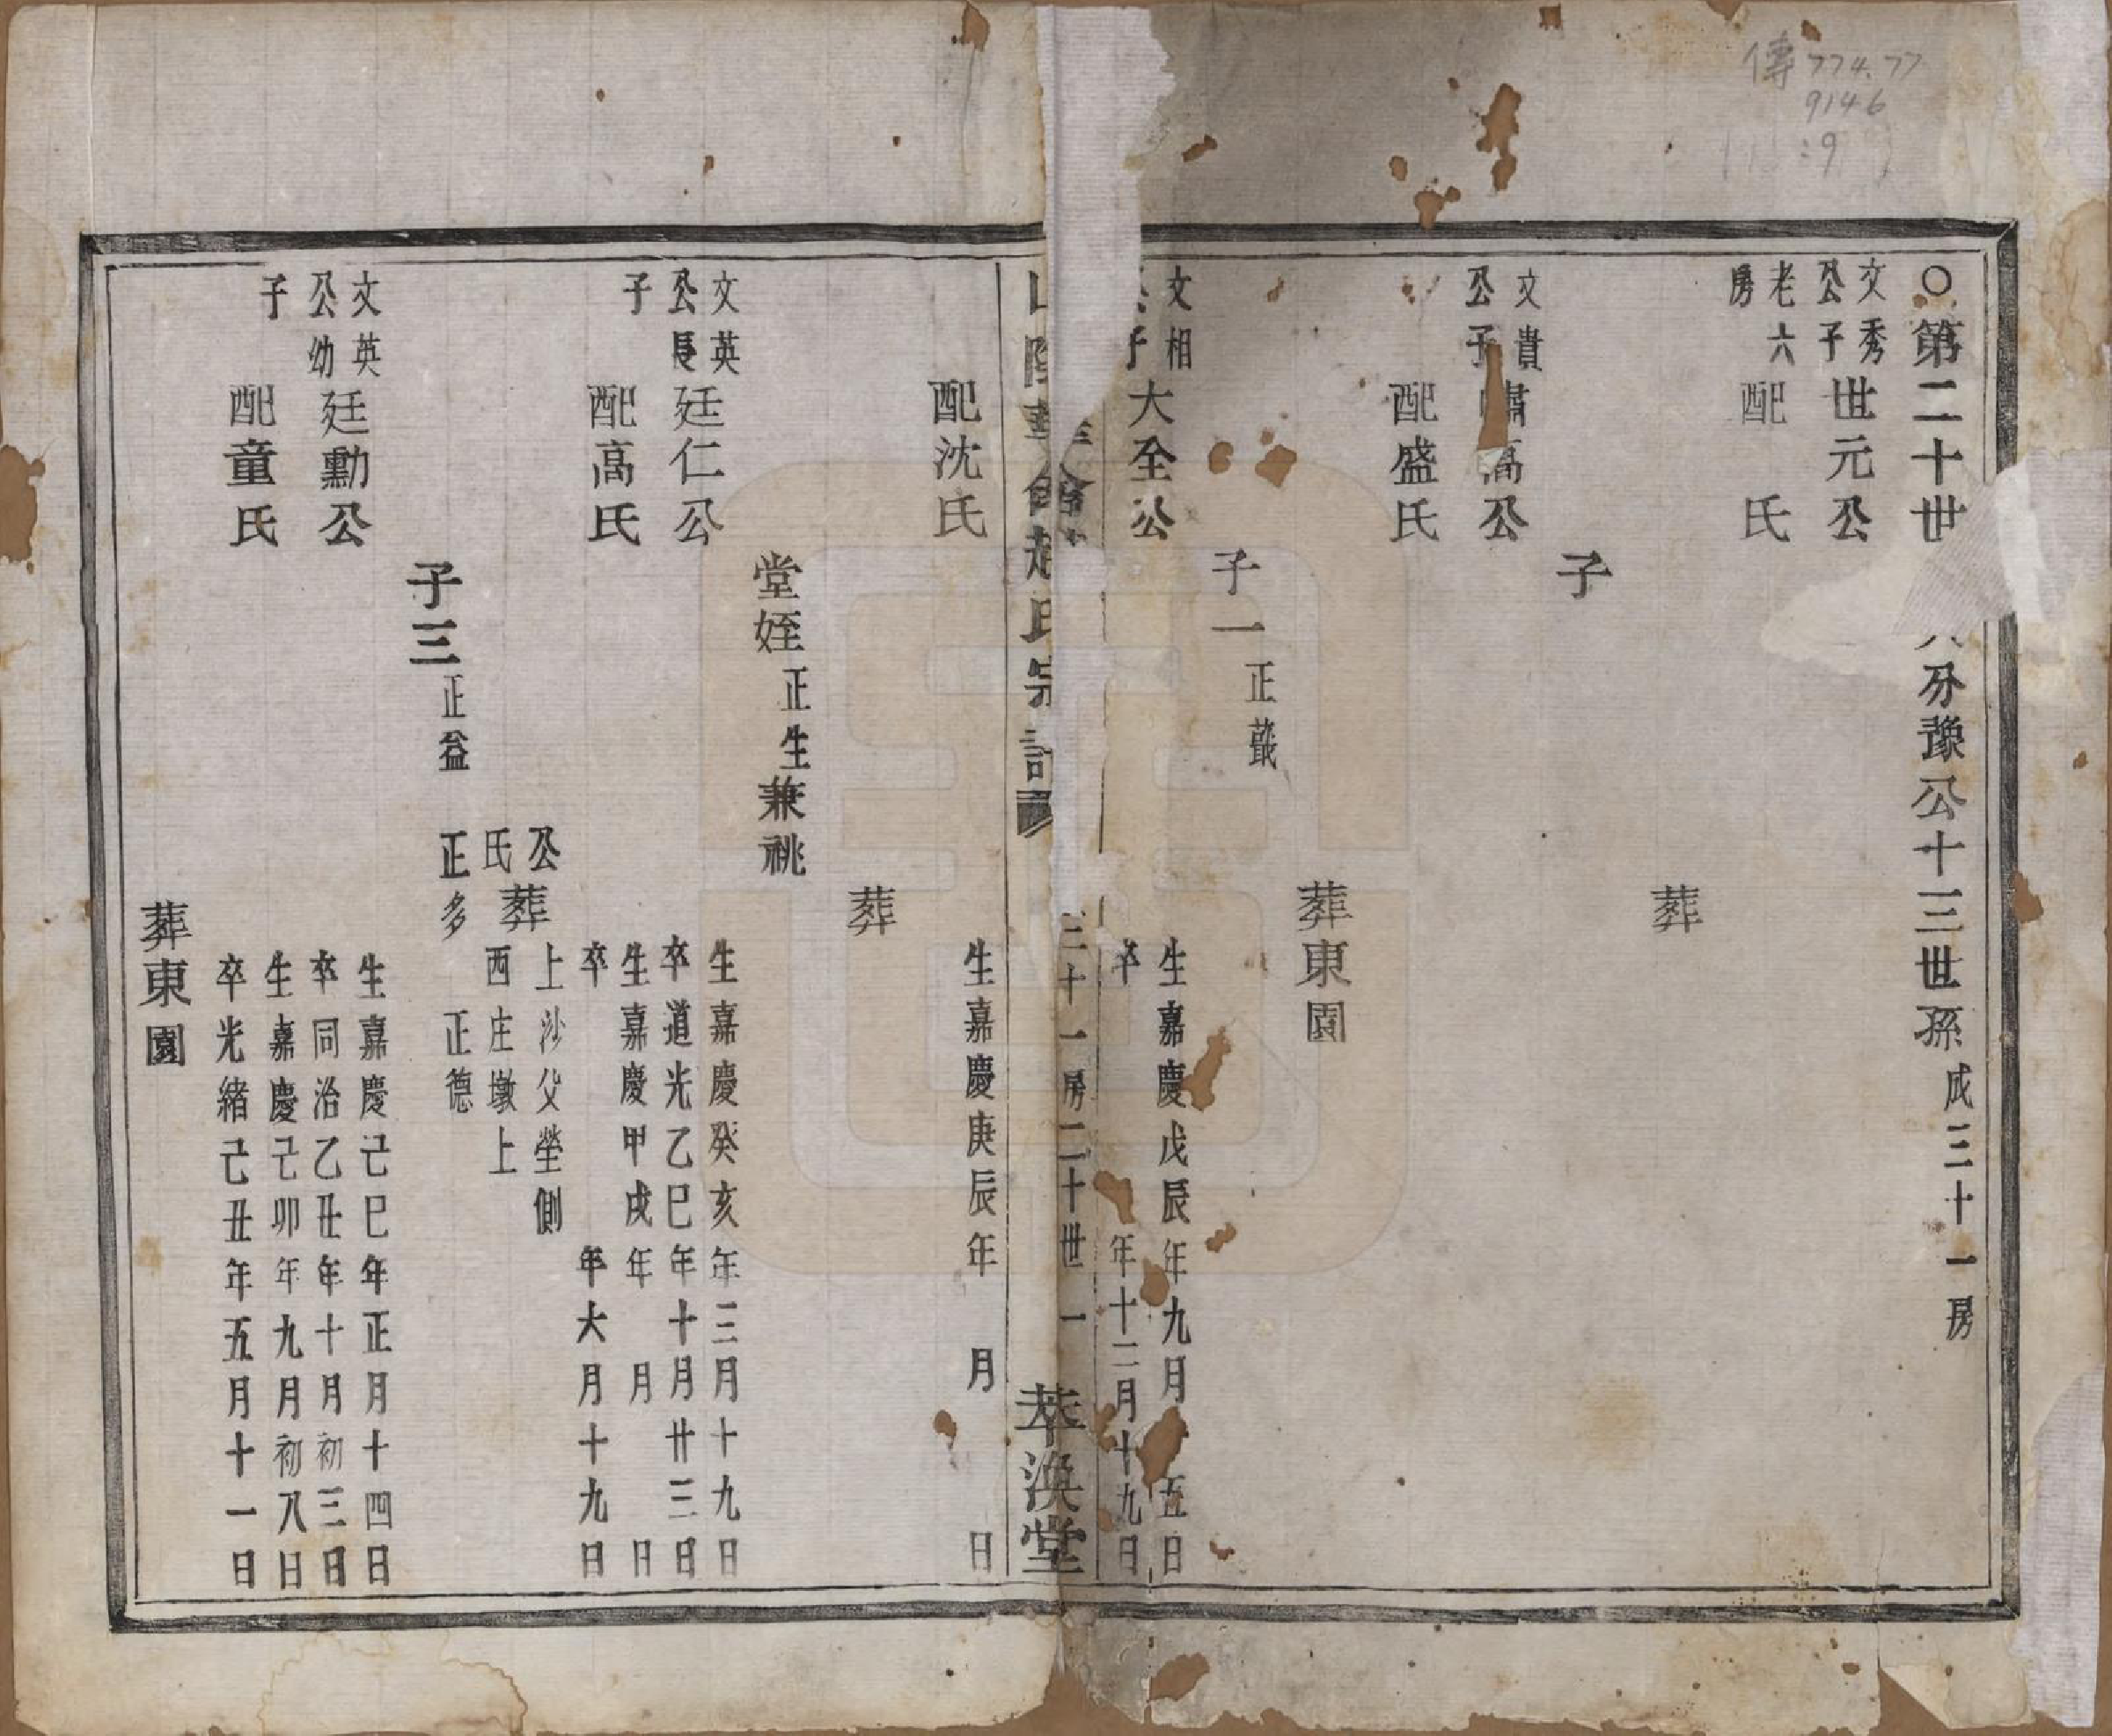 傳 774.77
9146
:9
○第二十世
分豫公十三世孫 成三十一房
文秀公子老六房
世元公
配 氏
葬
子
文貴公子
高公
配盛氏
葬東園
子一 正嚴
文相
子
大全公
生嘉慶戊辰年九月 五日
卒 年十二月十九日
氏宗
三十一房二十世 一
萃渙堂
配沈氏
生嘉慶庚辰年 月 日
葬
堂姪正生兼祧
文英公長子
廷仁公
生嘉慶癸亥年三月十九日
卒道光乙巳年十月廿三日
配高氏
生嘉慶甲戌年 月 日
卒 年大月十九日
公氏葬上沙父塋側西庄墩上
子三 正益 正多 正德
文英公幼子
廷勳公
生嘉慶己巳年正月十四日
卒同治乙丑年十月初三日
配童氏
生嘉慶己卯年九月初八日
卒光緒己丑年五月十一日
葬東園